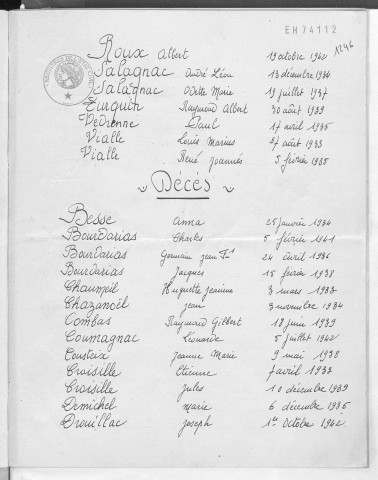 EH74112
1246
Roux Albert 19 octobre 1942
Salagnac André Léon 13 décembre 1934
Salagnac Odette Marie 19 juillet 1937
Turquin Raymond Albert 30 août 1939
Vedrenne Paul 17 avril 1935
Vialle Louis Marius 27 août 1933
Vialle René Joannès 5 février 1935
Décès
Besse Anna 25 janvier 1934
Bourdarias Charles 5 février 1941
Bourdarias Germain Jean Fs 24 avril 1936
Bourdarias Jacques 15 février 1938
Chaumeil Huguette Jeanne 3 mars 1933
Chazanoël Jean 3 novembre 1934
Combas Raymond Gilbert 18 juin 1939
Coumagnac Léonarde 5 juillet 1942
Cousteix Jeanne Marie 9 mai 1938
Croisille Etienne 7 avril 1933
Croisille Jules 10 décembre 1939
Demichel Marie 6 décembre 1935
Drouillac Joseph 1er Octobre 1942